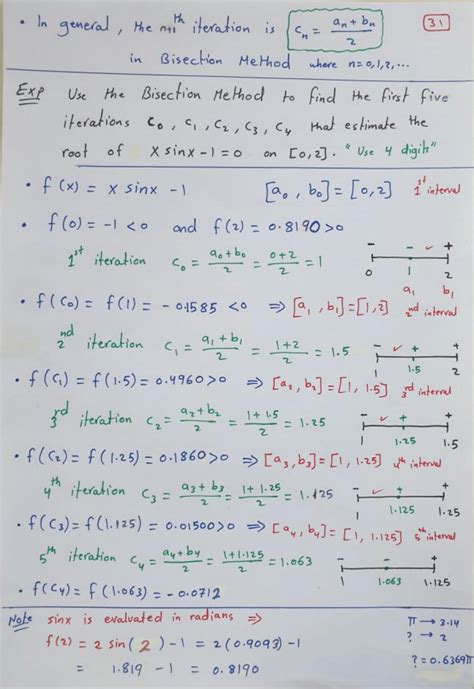 • In general, the n+1th iteration is cn = (an + bn)/2 31
in Bisection Method where n=0,1,2,...
Exp Use the Bisection Method to find the first five
iterations c0, c1, c2, c3, c4 that estimate the
root of x sinx - 1 = 0 on [0,2]. "Use 4 digits"
• f(x) = x sinx - 1 [a0, b0] = [0,2] 1st interval
• f(0) = -1 < 0 and f(2) = 0.8190 > 0
1st iteration c0 = (a0+b0)/2 = (0+2)/2 = 1
- - ✓ +
0 1 2
• f(c0) = f(1) = -0.1585 < 0 ⇒ [a1, b1] = [1,2] 2nd interval
a1 b1
2nd iteration c1 = (a1+b1)/2 = (1+2)/2 = 1.5
- ✓ + +
1 1.5 2
• f(c1) = f(1.5) = 0.4960 > 0 ⇒ [a2, b2] = [1, 1.5] 3rd interval
3rd iteration c2 = (a2+b2)/2 = (1+1.5)/2 = 1.25
- ✓ + +
1 1.25 1.5
• f(c2) = f(1.25) = 0.1860 > 0 ⇒ [a3, b3] = [1, 1.25] 4th interval
4th iteration c3 = (a3+b3)/2 = (1+1.25)/2 = 1.125
- ✓ + +
1 1.125 1.25
• f(c3) = f(1.125) = 0.01500 > 0 ⇒ [a4, b4] = [1, 1.125] 5th interval
5th iteration c4 = (a4+b4)/2 = (1+1.125)/2 = 1.063
- +
1 1.063 1.125
• f(c4) = f(1.063) = -0.0712
Note sinx is evaluated in radians ⇒
π → 3.14
f(2) = 2 sin(2) - 1 = 2(0.9093) - 1
? → 2
= 1.819 - 1 = 0.8190
? = 0.6369π